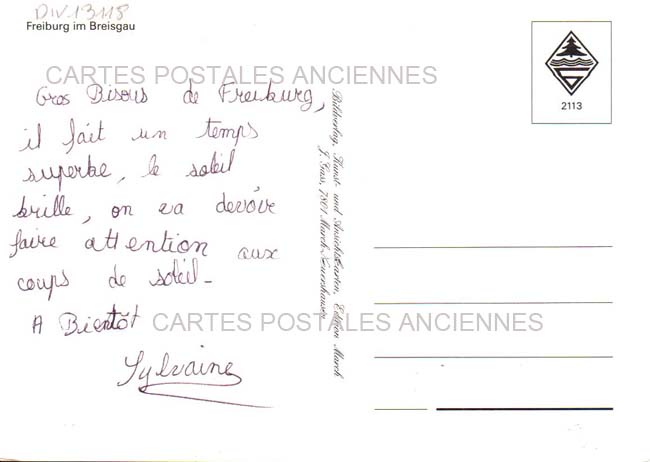 DIV 13118
Freiburg im Breisgau
CARTES POSTALES ANCIENNES
Gros Bisous de Freiburg,
il fait un temps
superbe, le soleil
brille, on va devoir
faire attention aux
coups de soleil -
A Bientôt
Sylvaine
CARTES POSTALES ANCIENNES
Bildverlag, Kunst- und Ansichtskarten, Edition March
J. Gass, 7801 March-Neuershausen
2113